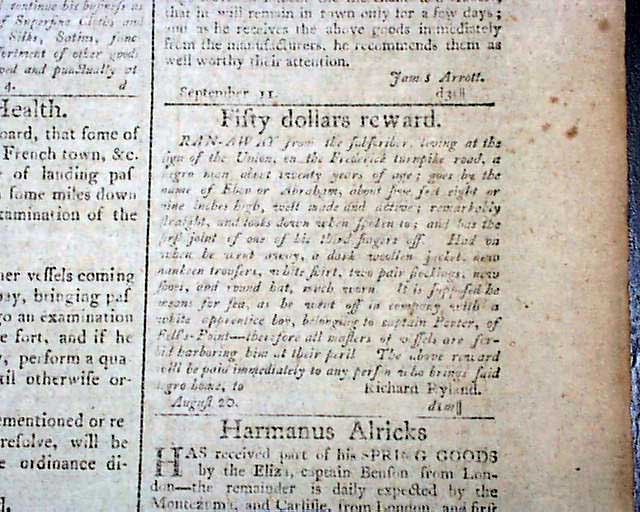 continue his business as
of Superfine Cloths and
Silks, Satins, fine
assortment of other goods
and punctually at
4. d
Health.
board, that some of
French town, &c.
of landing paſ
ſome miles down
examination of the
her veſſels coming
bay, bringing paſ
go an examination
the fort, and if he
, perform a qua
otherwiſe or-
ementioned or re
reſolve, will be
ordinance di-
that he will remain in town only for a few days;
and as he receives the above goods immediately
from the manufacturers, he recommends them as
well worthy their attention.
James Arrott.
September 11. d3t‖
Fifty dollars reward.
RAN-AWAY from the ſubſcriber, living at the
ſign of the Union, on the Frederick turnpike road, a
negro man about twenty years of age; goes by the
name of Eben or Abraham, about five feet eight or
nine inches high, well made and active; remarkably
ſtraight, and looks down when ſpoken to; and has the
firſt joint of one of his third fingers off. Had on
when he went away, a dark woollen jacket, new
nankeen trouſers, white ſhirt, two pair ſtockings, new
ſhoes, and round hat, much worn. It is ſuppoſed he
means for ſea, as he went off in company with a
white apprentice boy, belonging to captain Porter, of
Fell's-Point—therefore all maſters of veſſels are for-
bid harboring him at their peril. The above reward
will be paid immediately to any perſon who brings ſaid
negro home, to Richard Ryland.
August 20. d1m‖
Harmanus Alricks
HAS received part of his SPRING GOODS
by the Eliza, captain Benſon from Lon-
don—the remainder is daily expected by the
Montezuma, and Carliſle, from London, and firſt